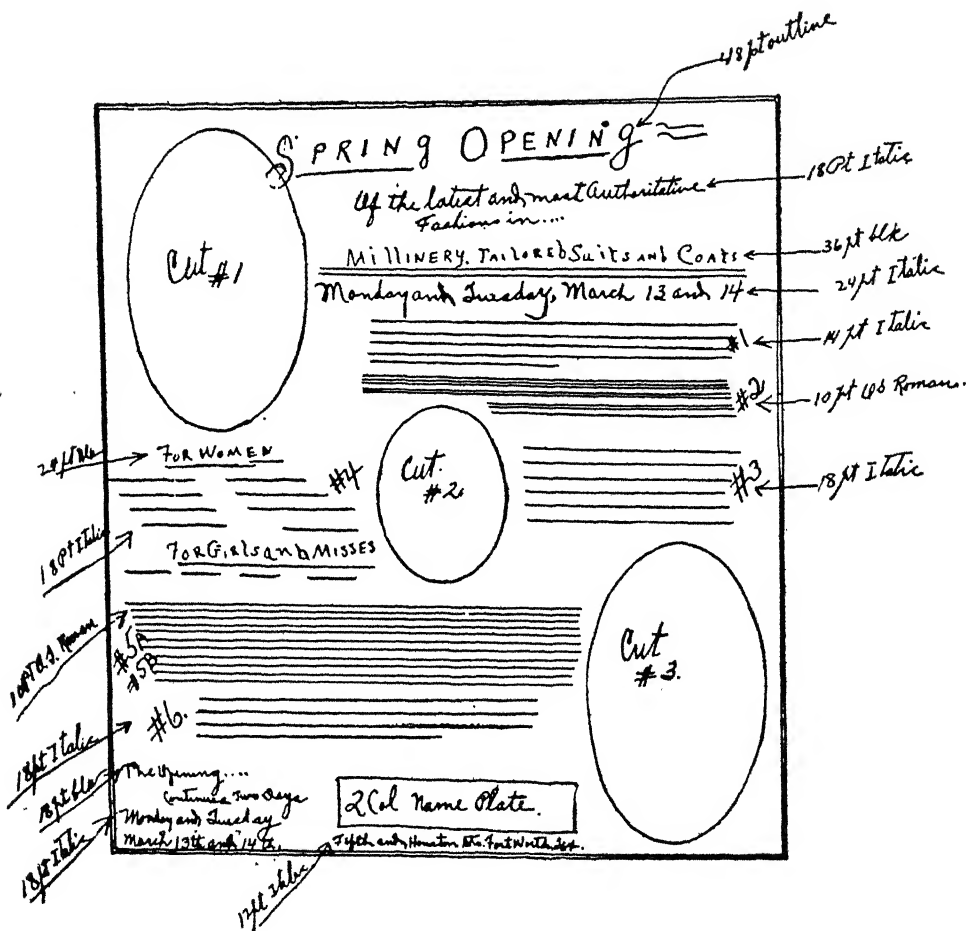 48 pt outline
SPRING OPENING
18 Pt Italic
Of the latest and most Authoritative
Fashions in....
36 pt blk
MILLINERY. TAILORED SUITS AND COATS
24 pt Italic
Monday and Tuesday, March 13 and 14
14 pt Italic
#1
10 pt Roman.
#2
Cut #1
24 pt blk
FOR WOMEN
#4
Cut.
#2.
#3
18 pt Italic
18 Pt Italic
FOR GIRLS and MISSES
10 PT Roman
#5A
#5B
Cut
#3.
18 pt Italic
#6.
18 pt blk
The Opening....
Continues Two Days
18 pt Italic
Monday and Tuesday
March 13th and 14th.
2 Col Name Plate.
Fifth and Houston Sts. Fort Worth Tex.
12 pt Italic